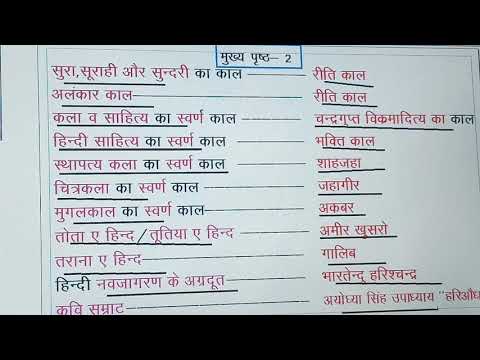 मुख्य पृष्ठ– 2
सुरा,सूराही और सुन्दरी का काल ———— रीति काल
अलंकार काल———— रीति काल
कला व साहित्य का स्वर्ण काल ———— चन्द्रगुप्त विक्रमादित्य का काल
हिन्दी साहित्य का स्वर्ण काल ———— भक्ति काल
स्थापत्य कला का स्वर्ण काल ———— शाहजहा
चित्रकला का स्वर्ण काल———— जहागीर
मुगलकाल का स्वर्ण काल———— अकबर
तोता ए हिन्द/तूतिया ए हिन्द ———— अमीर खुसरो
तराना ए हिन्द———— गालिब
हिन्दी नवजागरण के अग्रदूत———— भारतेन्दु हरिश्चन्द्र
कवि सम्राट———— अयोध्या सिंह उपाध्याय "हरिऔध